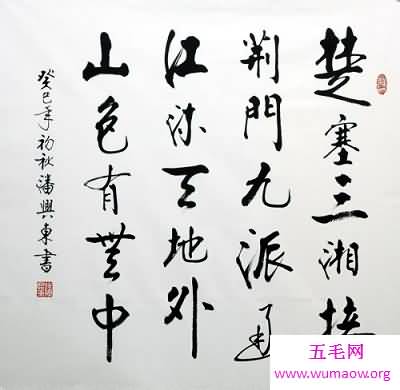 楚塞三湘接
荆門九派通
江流天地外
山色有無中
癸巳年初秋潘興東書
五毛网
www.wumaow.org